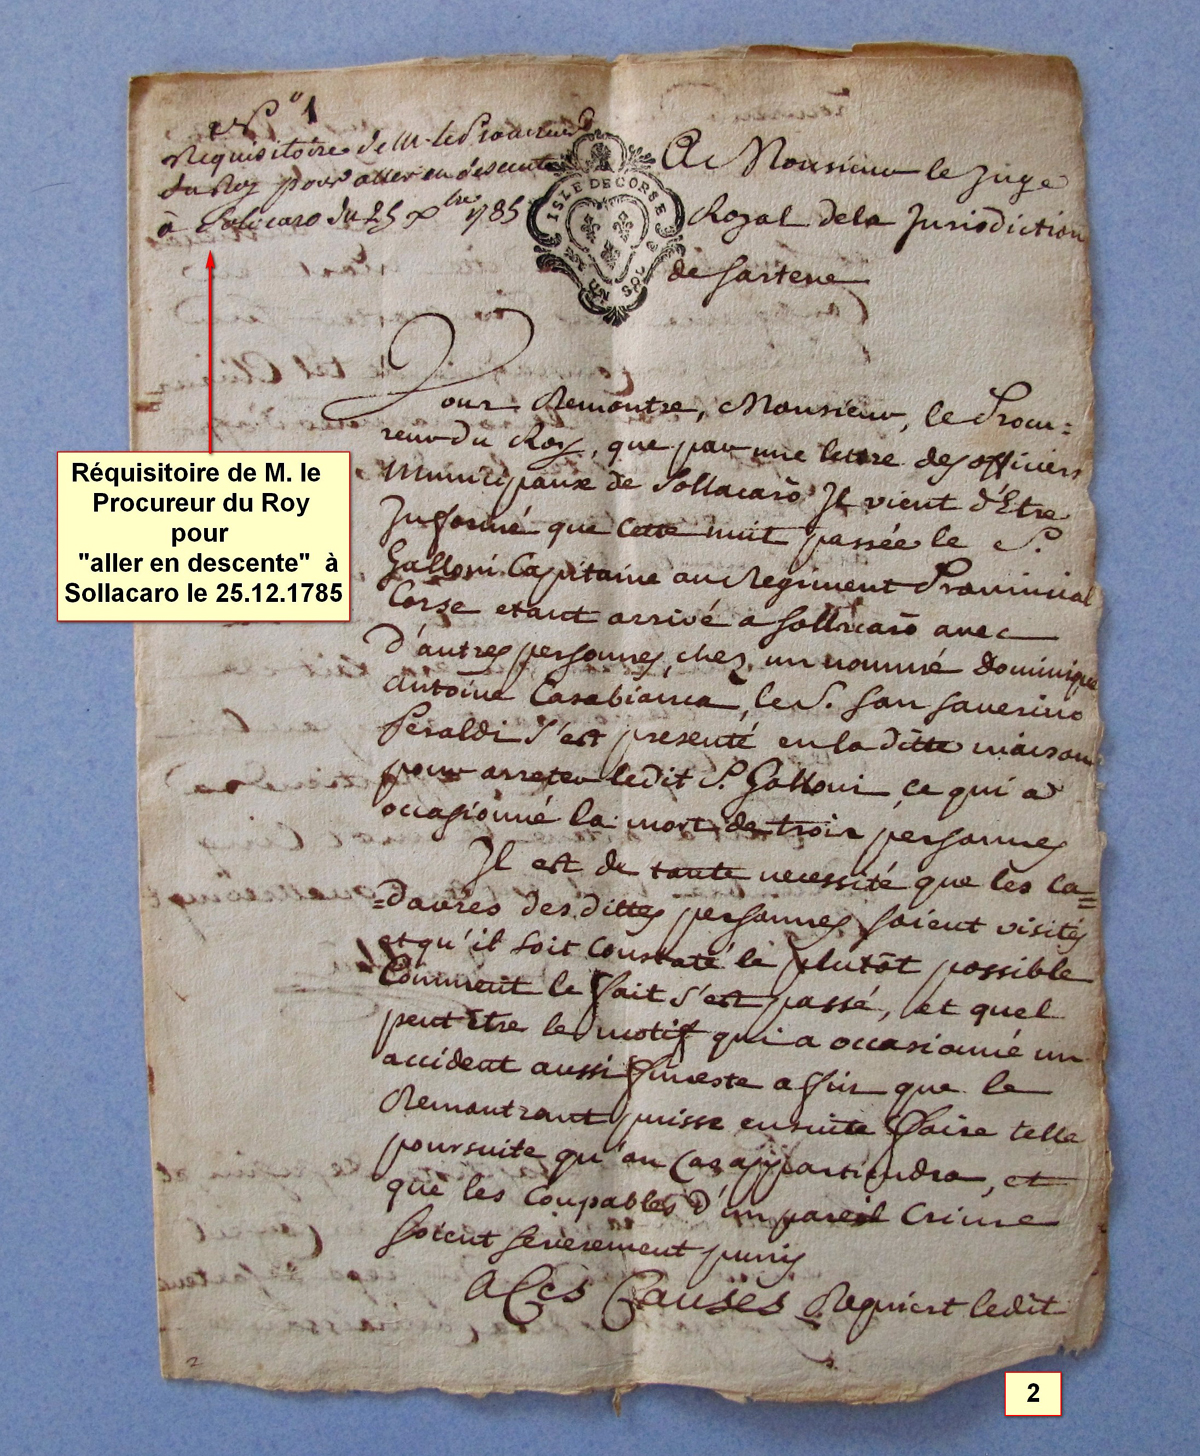 N° 1
Requisitoire de M. le Procureur
du Roy pour aller en descente
à Solicaro du 25 Xbre 1785
ISLE DE CORSE
UN SOL
A Monsieur le Juge
Royal de la Jurisdiction
de Sartene
Réquisitoire de M. le
Procureur du Roy
pour
"aller en descente" à
Sollacaro le 25.12.1785
Vous Remontre, Monsieur, le Procu=
reur du Roy, que par une lettre des officiers
Municipaux de Sollacaro Il vient d'Etre
Informé que cette nuit passée le S.
Galloni Capitaine au Regiment Provincial
Corse etant arrivé a Sollacaro avec
d'autres personnes, chez un nommé Dominique
Antoine Casabianca, le S. San Saverino
Peraldi s'est presenté en la ditte maison
pour arreter ledit S. Galloni, ce qui a
occasionné la mort de trois personnes
Il est de toute necessité que les ca=
=davres des dittes personnes soient visités
et qu'il soit constaté le plutôt possible
Comment le fait s'est passé, et quel
peut être le motif qui a occasionné un
accident aussi funeste afin que le
Remontrant puisse ensuite faire telle
poursuite qu'au cas appartiendra, et
que les coupables d'un pareil crime
soient severement punis
A Ces Causes Requiert ledit
2
2